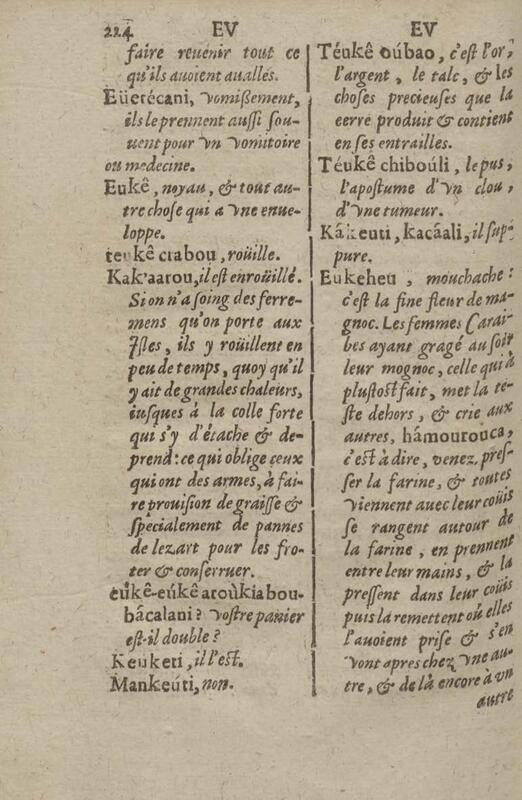 224 EV EV
faire reuenir tout ce
qu'ils auoient auallés.
Eüerécani, vomißement,
ils le prennent aussi sou-
uent pour vn vomitoire
ou medecine.
Eukê, noyau, & tout au-
tre chose qui a vne enue-
loppe.
teukê ciabou, roüille.
Kak'aarou, il est enroüillé.
Si on n'a soing des ferre-
mens qu'on porte aux
Isles, ils y roüillent en
peu de temps, quoy qu'il
y ait de grandes chaleurs,
iusques à la colle forte
qui s'y d'étache & de-
prend: ce qui oblige ceux
qui ont des armes, à fai-
re prouision de graisse &
specialement de pannes
de lezart pour les fro-
ter & conserruer.
eukê-eúkê aroùkiabou-
bácalani? vostre panier
est-il double?
Keuketi, il l'est.
Mankeúti, non.
Téukê oúbao, c'est l'or,
l'argent, le talc, & les
choses precieuses que la
eerre produit & contient
en ses entrailles.
Téukê chiboúli, le pus,
l'apostume d'vn clou,
d'vne tumeur.
Kákeuti, kacáali, il sup-
pure.
Eukeheu, mouchache:
c'est la fine fleur de ma-
gnoc. Les femmes Carai-
bes ayant gragé au soir
leur mognoc, celle qui a
plustost fait, met la te-
ste dehors, & crie aux
autres, hámourouca,
c'est à dire, venez, pres-
ser la farine, & toutes
viennent auec leur coüis
se rangent autour de
la farine, en prennent
entre leur mains, & la
pressent dans leur coüis
puis la remettent où elles
l'auoient prise & s'en
vont apres chez vne au-
tre, & de là encore à vn
autre